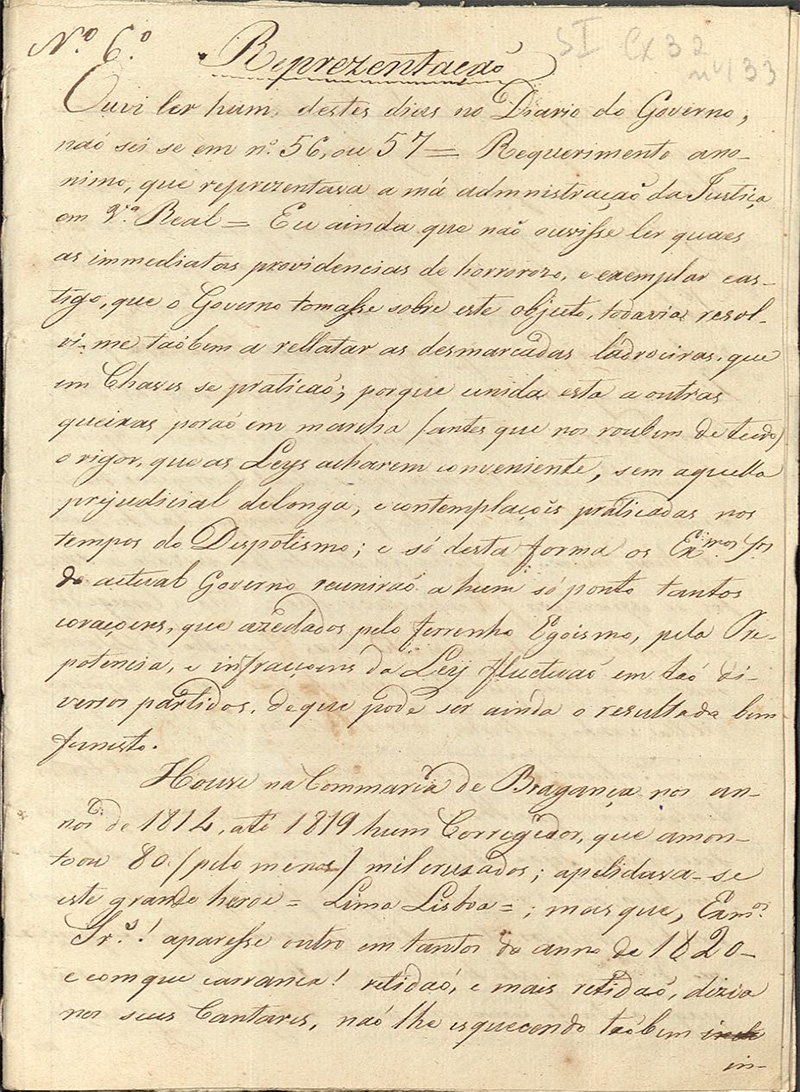 Nº 6.º
SI Cx 32
nº 133
Reprezentação
Ouvi ler hum destes dias no Diario do Governo,
naõ sei se em nº. 56, ou 57 = Requerimento ano-
nimo, que reprezentava a má admnistração da Justiça
em Vª. Real = Eu ainda que não ouvisse ler quaes
as immediatas providencias de horrorozo, e exemplar cas-
tigo, que o Governo tomasse sobre este objecto, todavia resol-
vi-me taõbem a rellatar as desmarcadas ladroeiras, que
em Chaves se praticaõ; porque unida esta a outras
queixas poraõ em marcha (antes que nos roubem de todo)
o rigor, que as Leys acharem conveniente, sem aquella
prejudicial delonga, e contemplaçoẽs praticadas nos
tempos do Despotismo; e só desta forma os Exmos. Srs.
do actual Governo reuniraõ a hum só ponto tantos
coraçoens, que azedados pelo ferrenho Egoismo, pela Pre-
potencia, e infraçoens da Ley fluctuaõ em taõ di-
versos partidos, de que póde ser ainda o resultado bem
funesto.
Houve na Commarca de Bragança nos an-
nos de 1814, até 1819 hum Corregedor, que amon-
toou 80 (pelo menos) mil cruzados; apelidava-se
este grande heroe = Lima Lisboa = ; mas que, Exmos.
Srs.! aparesse outro em tantos do anno de 1820-
e com que carranca! retidaõ, e mais retidaõ, dizia
nos seus Cantares, naõ lhe esquecendo taõbem
in-